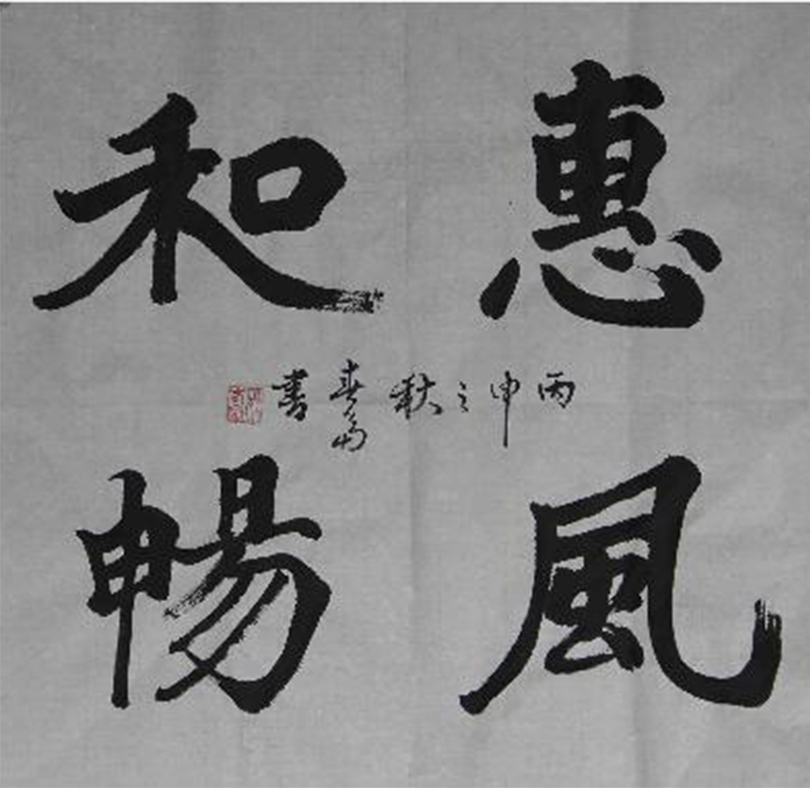 惠風
和暢
丙申之秋
書